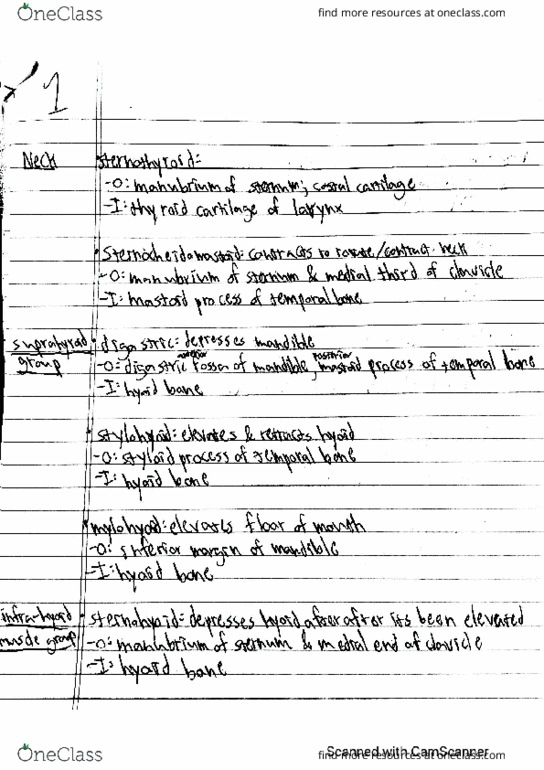 OneClass
find more resources at oneclass.com
1
Neck
sternothyroid:
-O: manubrium of sternum; costal cartilage
-I: thyroid cartilage of larynx
sternocleidomastoid: contracts to rotate/contract neck
-O: manubrium of sternum & medial third of clavicle
-I: mastoid process of temporal bone
suprahyoid group
digastric: depresses mandible
anterior posterior
-O: digastric fossa of mandible, mastoid process of temporal bone
-I: hyoid bone
stylohyoid: elevates & retracts hyoid
-O: styloid process of temporal bone
-I: hyoid bone
mylohyoid: elevates floor of mouth
-O: inferior margin of mandible
-I: hyoid bone
infra-hyoid muscle group
sternohyoid: depresses hyoid after after its been elevated
-O: manubrium of sternum & medial end of clavicle
-I: hyoid bone
Scanned with CamScanner
OneClass
find more resources at oneclass.com